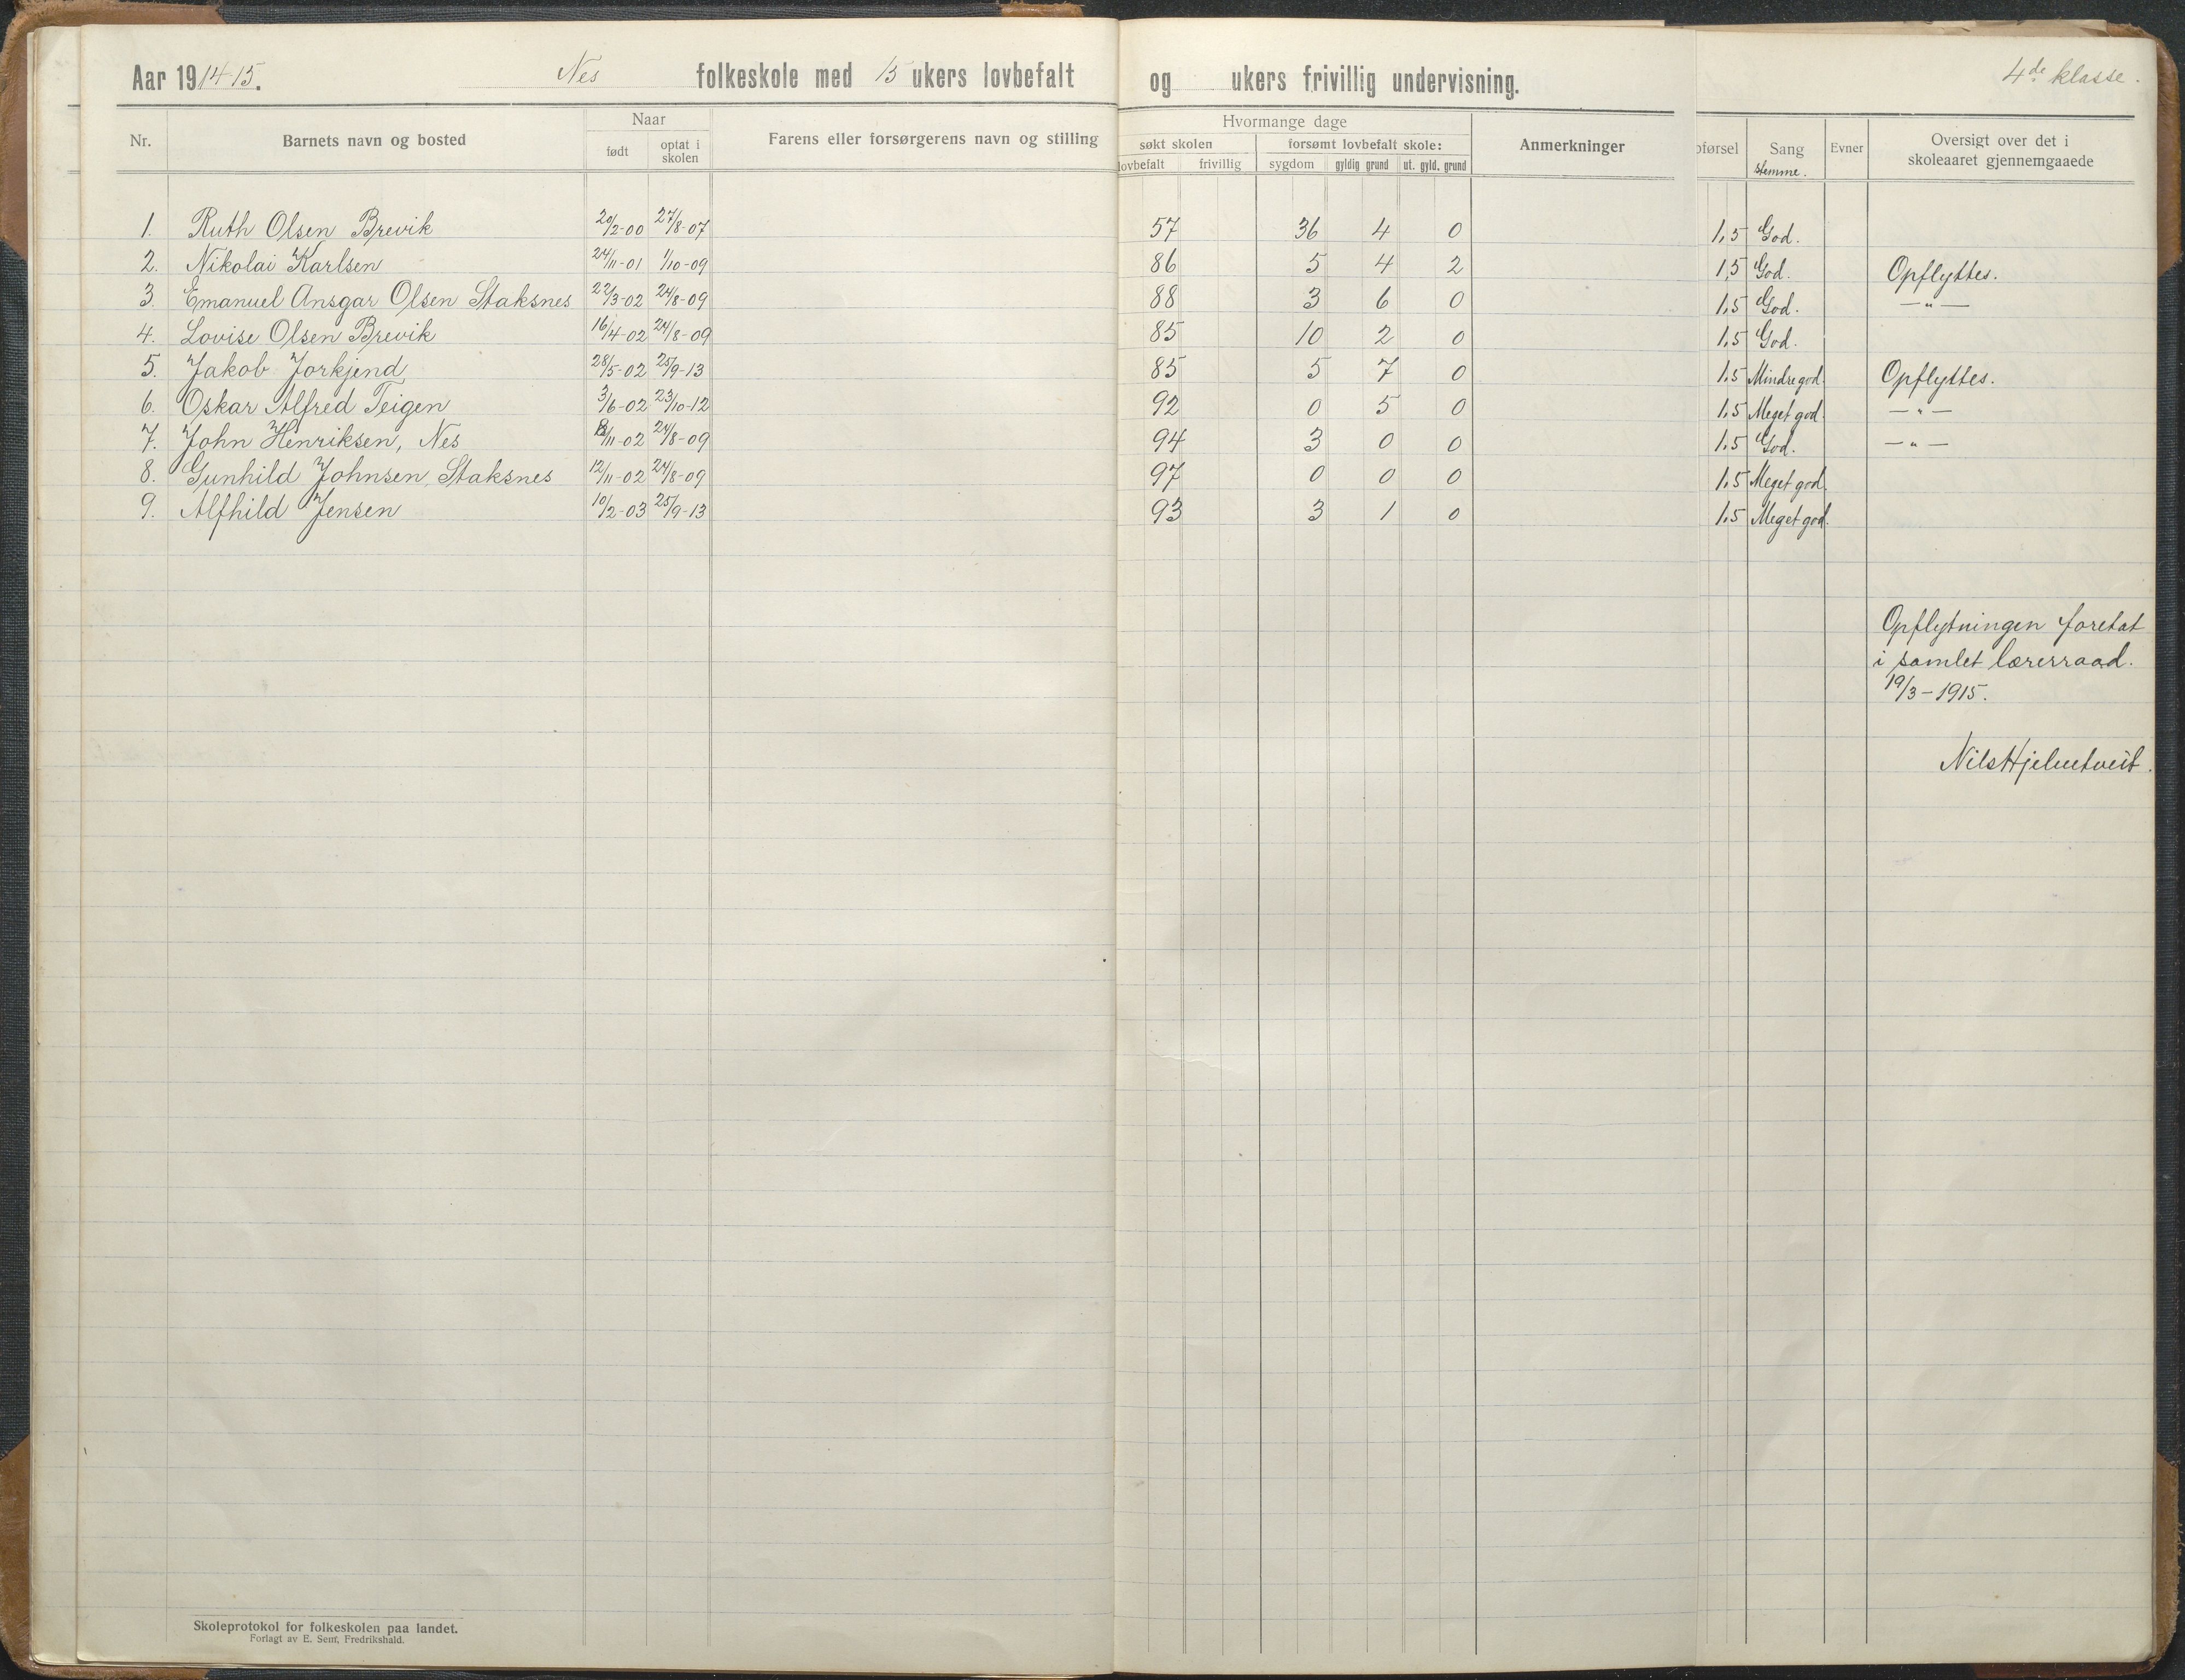 Aar 1914-15. Nes folkeskole med 15 ukers lovbefalt og ukers frivillig undervisning. 4de klasse.
Naar Hvormange dage
Nr. Barnets navn og bosted født optat i skolen Farens eller forsørgerens navn og stilling søkt skolen forsømt lovbefalt skole: Anmerkninger førsel Sang Evner Oversigt over det i skoleaaret gjennemgaaede
lovbefalt frivillig sygdom gyldig grund ut. gyld. grund stemme.
1. Ruth Olsen Brevik 20/2-00 27/8-07 57 36 4 0 1,5 God.
2. Nikolai Karlsen 24/11-01 1/10-09 86 5 4 2 1,5 God. Opflyttes.
3. Emanuel Ansgar Olsen Staksnes 22/3-02 24/8-09 88 3 6 0 1,5 God. —"—
4. Lovise Olsen Brevik 16/4-02 24/8-09 85 10 2 0 1,5 God.
5. Jakob Jorkjend 28/5-02 25/9-13 85 5 7 0 1,5 Mindre god. Opflyttes.
6. Oskar Alfred Teigen 3/6-02 23/10-12 92 0 5 0 1,5 Meget god. —"—
7. John Henriksen, Nes /11-02 24/8-09 94 3 0 0 1,5 God. —"—
8. Gunhild Johnsen, Staksnes 12/11-02 24/8-09 97 0 0 0 1,5 Meget god.
9. Alfhild Jensen 10/2-03 25/9-13 93 3 1 0 1,5 Meget god.
Opflytningen foretat
i samlet lærerraad.
19/3-1915.
Nils Hjelmtveit.
Skoleprotokol for folkeskolen paa landet.
Forlagt av E. Sem, Fredrikshald.